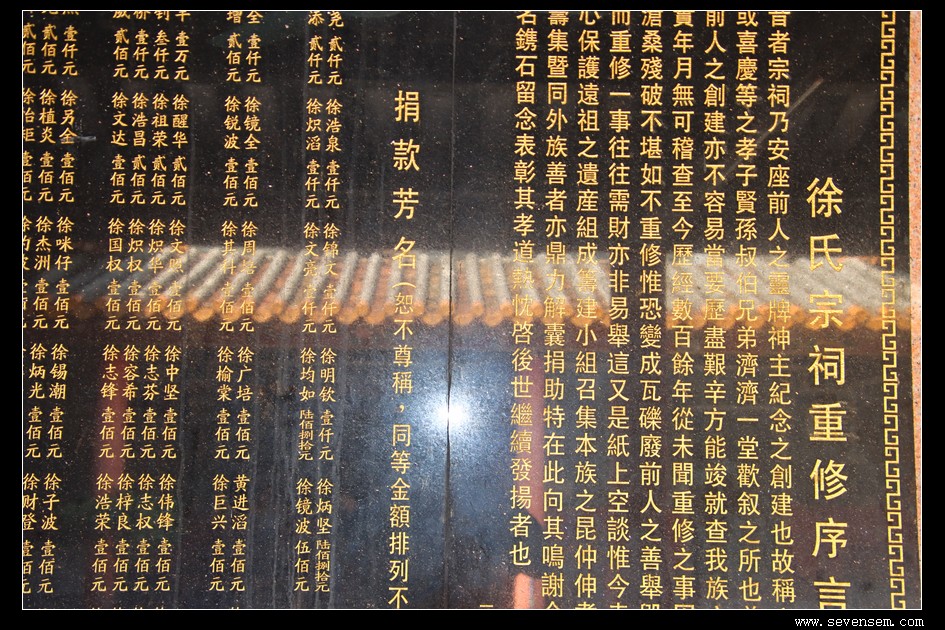 徐氏宗祠重修序言
昔者宗祠乃安座前人之靈牌神主紀念之創建也故稱
或喜慶等之孝子賢孫叔伯兄弟濟濟一堂歡叙之所也
前人之創建亦不容易當要歷盡艱辛方能竣就查我族
實年月無可稽查至今歷經數百餘年從未聞重修之事
滄桑殘破不堪如不重修惟恐變成瓦礫廢前人之善舉
而重修一事往往需財亦非易舉這又是紙上空談惟今
心保護遠祖之遺産組成籌建小組召集本族之昆仲伸
籌集暨同外族善者亦鼎力解囊捐助特在此向其鳴謝
名鐫石留念表彰其孝道熱忱啓後世繼續發揚者也
捐款芳名(恕不尊稱,同等金額排列不
尧 貳仟元 徐浩泉 壹仟元 徐錦文 壹仟元 徐明钦 壹仟元 徐炳坚 陆佰捌拾元
添 貳仟元 徐炽滔 壹仟元 徐文 壹仟元 徐均如 陆佰捌拾元 徐镜波 伍佰元
全 壹仟元 徐镜全 壹佰元 徐周 壹佰元 徐广培 壹佰元 黄进滔 壹佰元
增 貳佰元 徐锐波 壹佰元 徐其 壹佰元 徐榆棠 壹佰元 徐巨兴 壹佰元
壹万元 徐醒华 貳佰元 徐文 壹佰元 徐中坚 壹佰元 徐伟锋 壹佰元
钊 叁仟元 徐祖荣 貳佰元 徐炽华 壹佰元 徐志芬 壹佰元 徐志权 壹佰元
桥 壹仟元 徐浩昌 貳佰元 徐炽权 壹佰元 徐容希 壹佰元 徐梓良 壹佰元
威 貳佰元 徐文达 壹佰元 徐国权 壹佰元 徐志锋 壹佰元 徐浩荣 壹佰元
壹仟元 徐另全 壹佰元 徐咪仔 壹佰元 徐锡潮 壹佰元 徐子波 壹佰元
貳佰元 徐植炎 壹佰元 徐杰洲 壹佰元 徐炳光 壹佰元 徐财登 壹佰元
貳佰元 壹佰元
www.sevensem.com